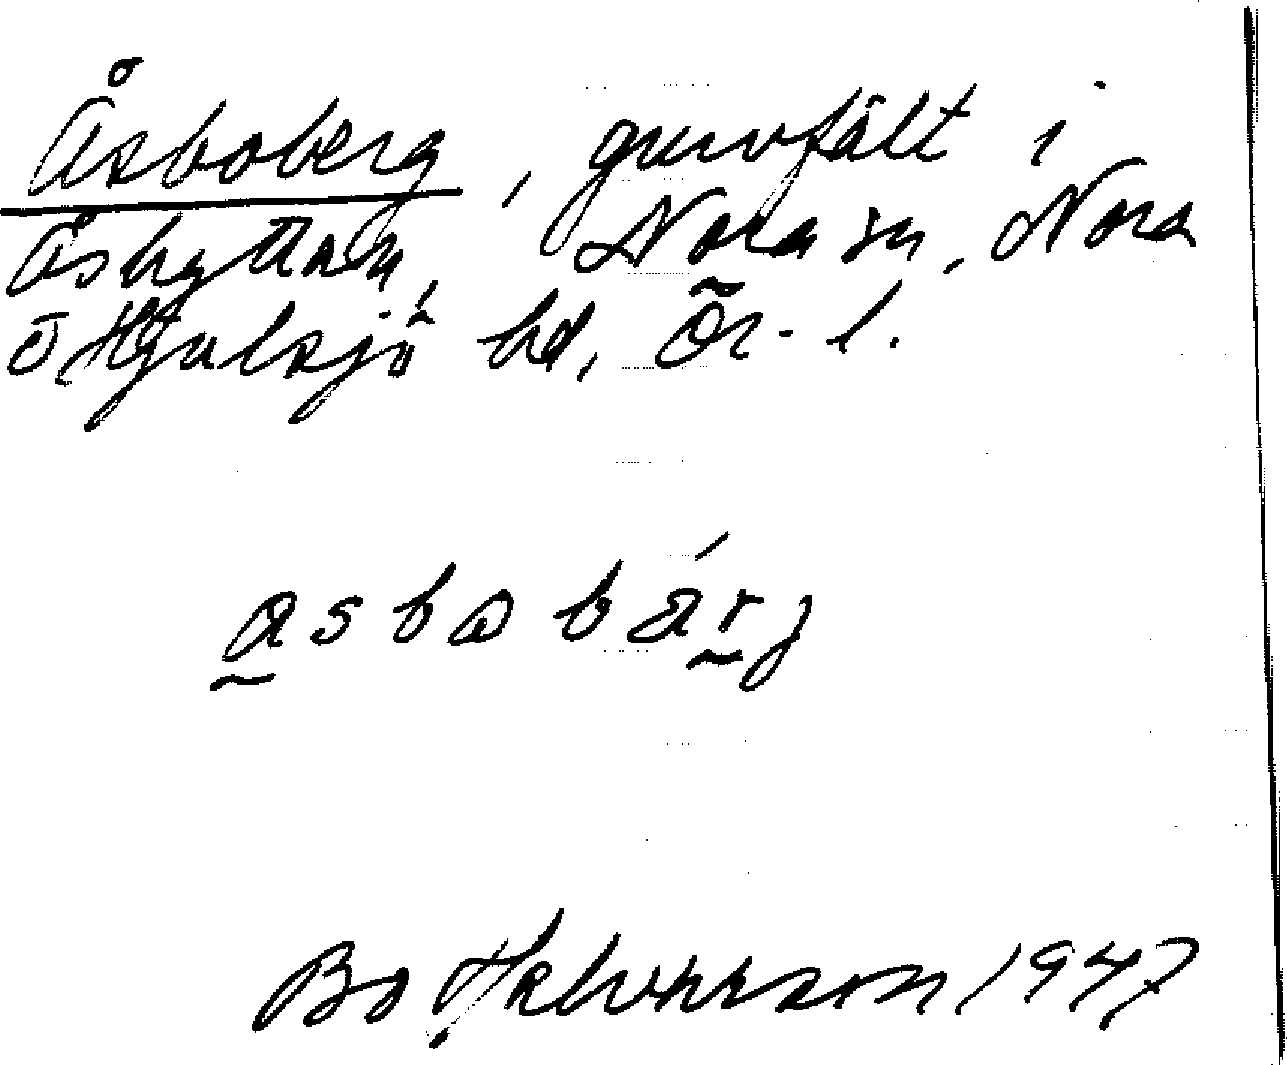 Åsboberg, gruvfält i
Åshyttan, Nora sn, Nora
o. Hjulsjö hd, Ör. l.
åsbobä́rj
Bo Halvarsson 1947